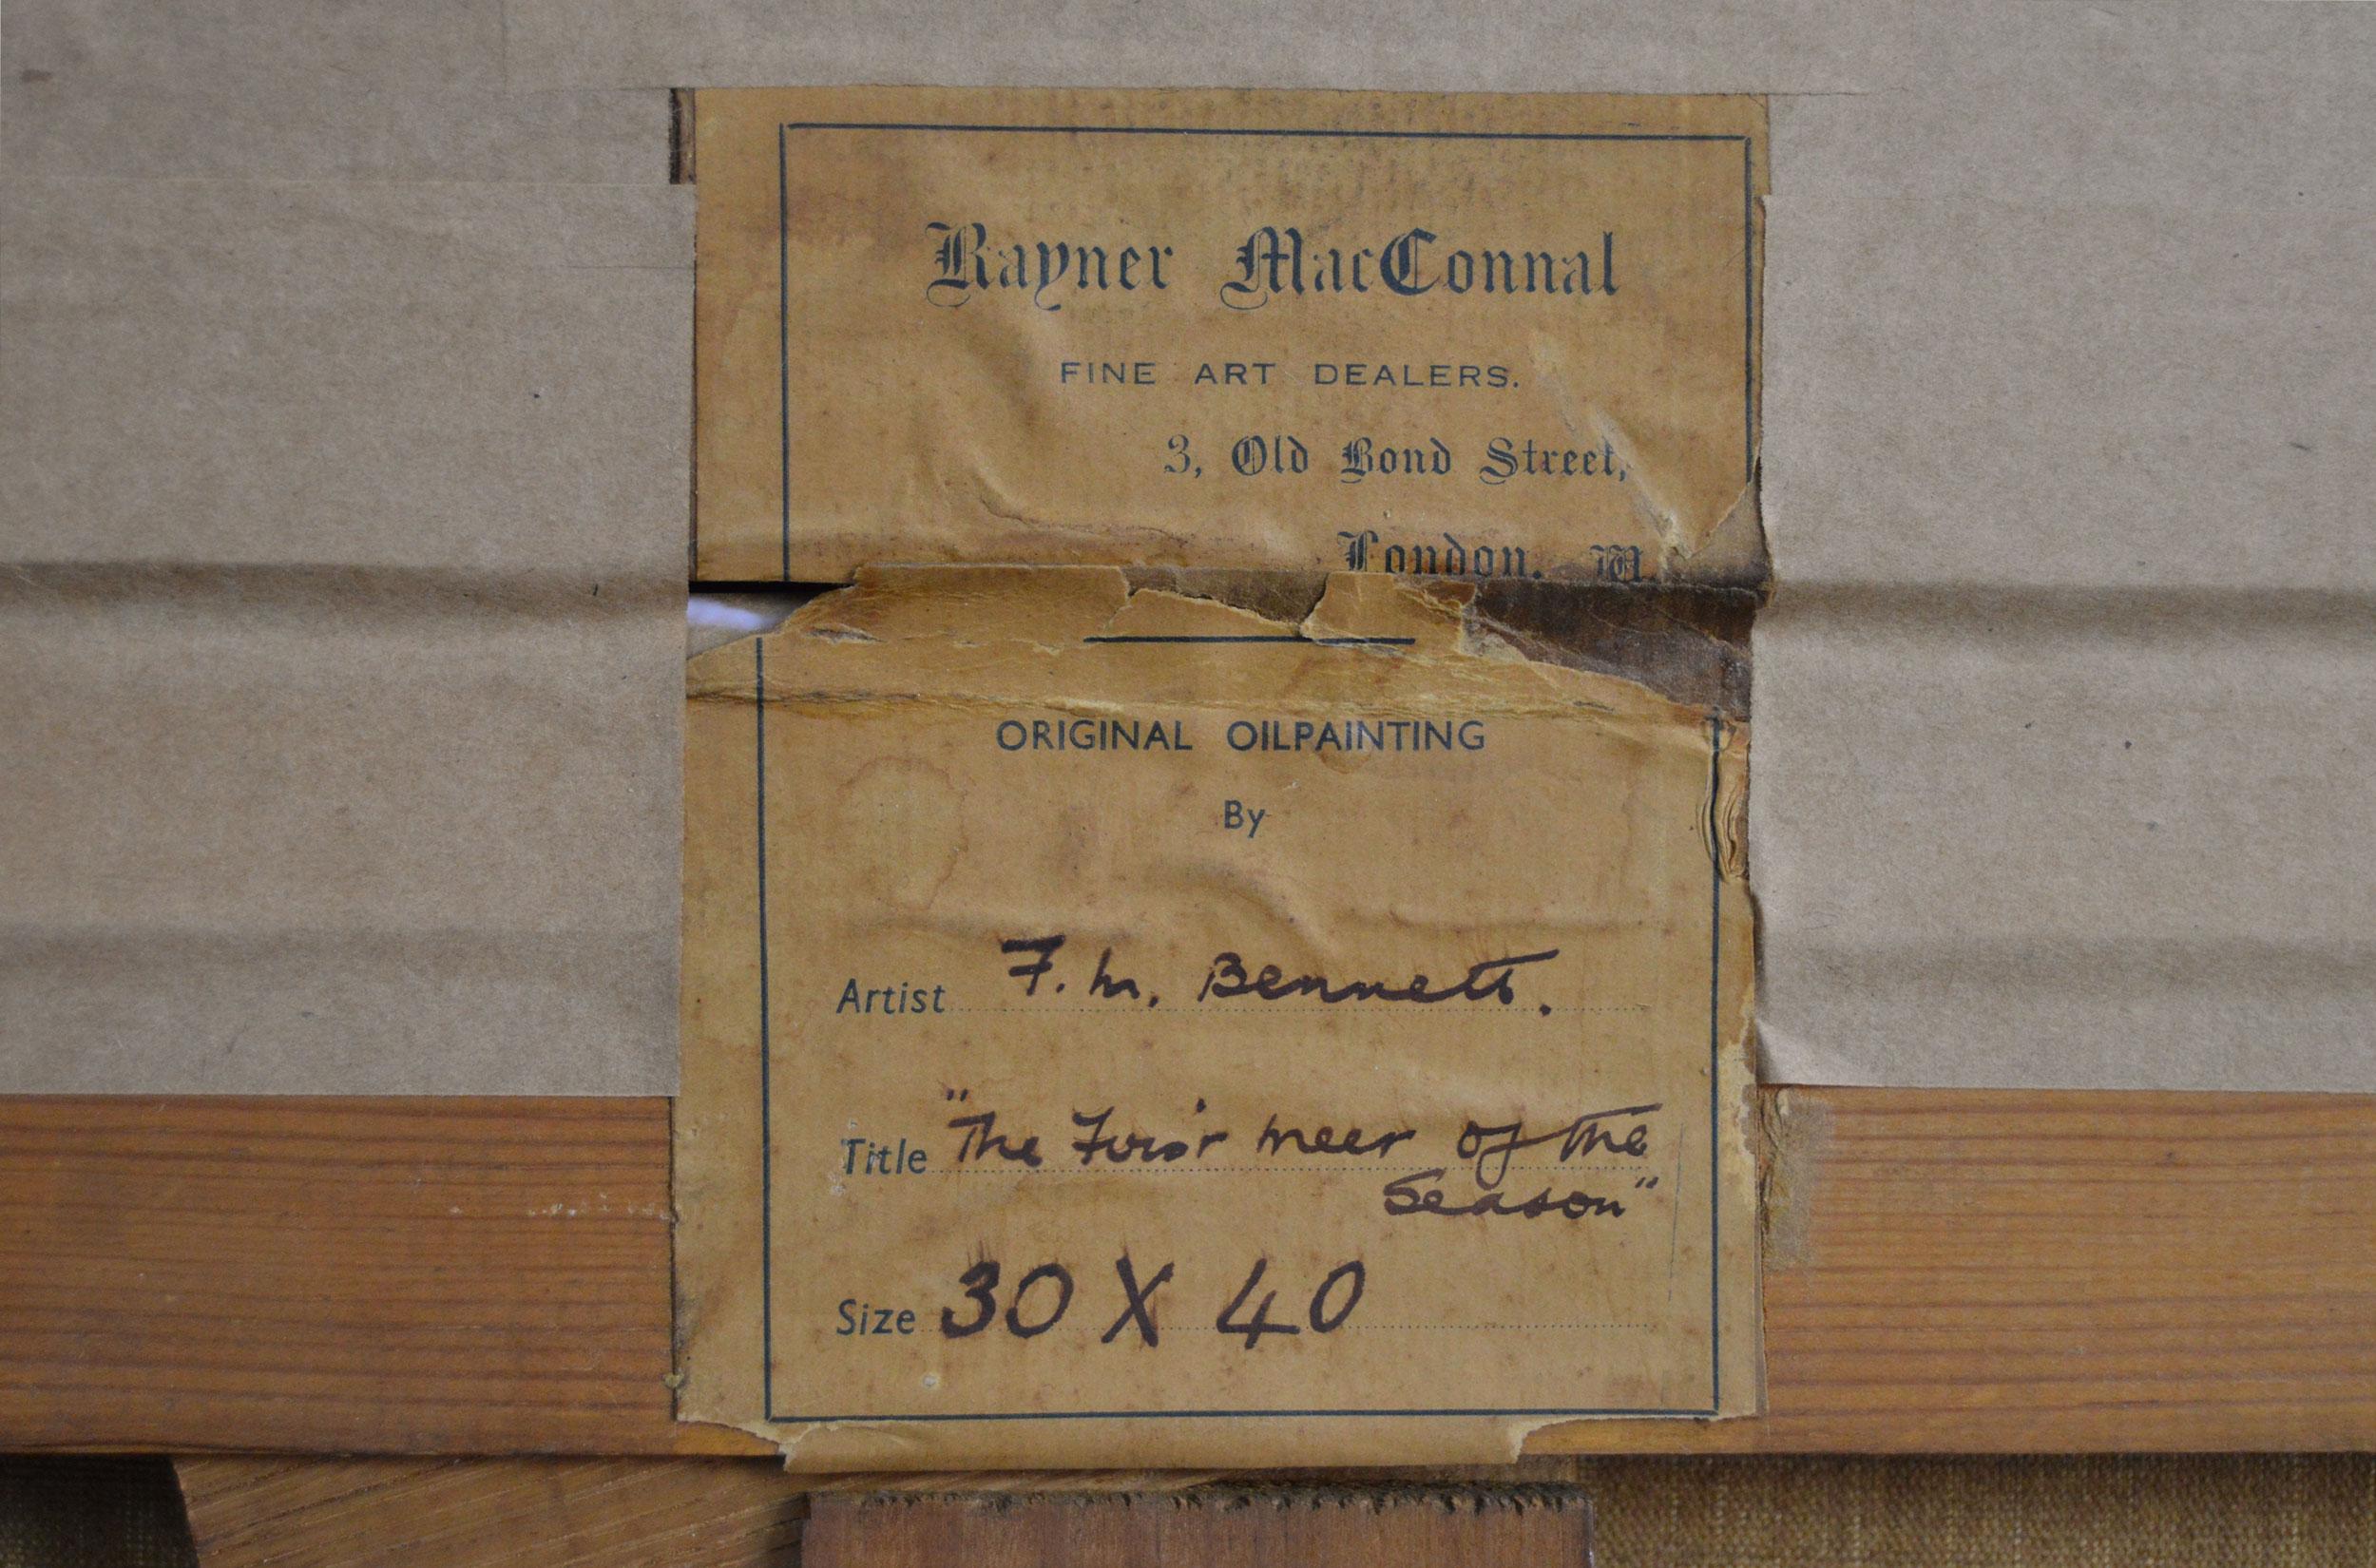 Rayner MacConnal
FINE ART DEALERS.
3, Old Bond Street,
London, W.
ORIGINAL OILPAINTING
By
Artist F. M. Bennett.
Title "The First meet of the
Season"
Size 30 X 40